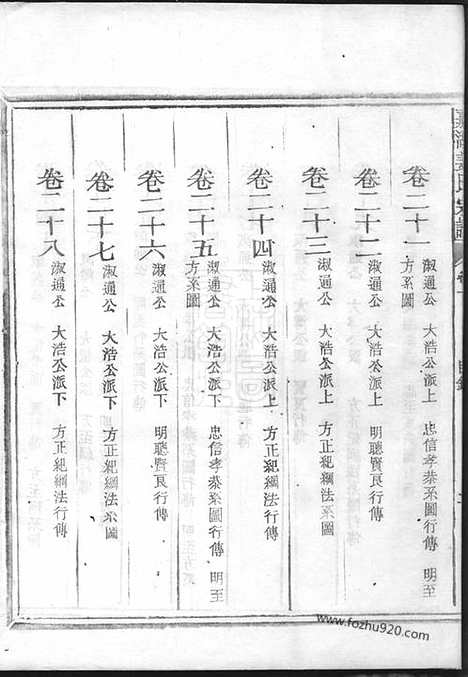 卷二十一
淑通公 大浩公派上 忠信孝恭系圖行傳 明至
方系圖
卷二十二
淑通公 大浩公派上 明聽賢良行傳
卷二十三
淑通公 大浩公派上 方正紀綱法系圖
卷二十四
淑通公 大浩公派上 方正紀綱法行傳
卷二十五
淑通公 大浩公派下 忠信孝恭系圖行傳 明至
方系圖
卷二十六
淑通公 大浩公派下 明聽賢良行傳
卷二十七
淑通公 大浩公派下 方正紀綱法系圖
卷二十八
淑通公 大浩公派下 方正紀綱法行傳
www.fozhu920.com